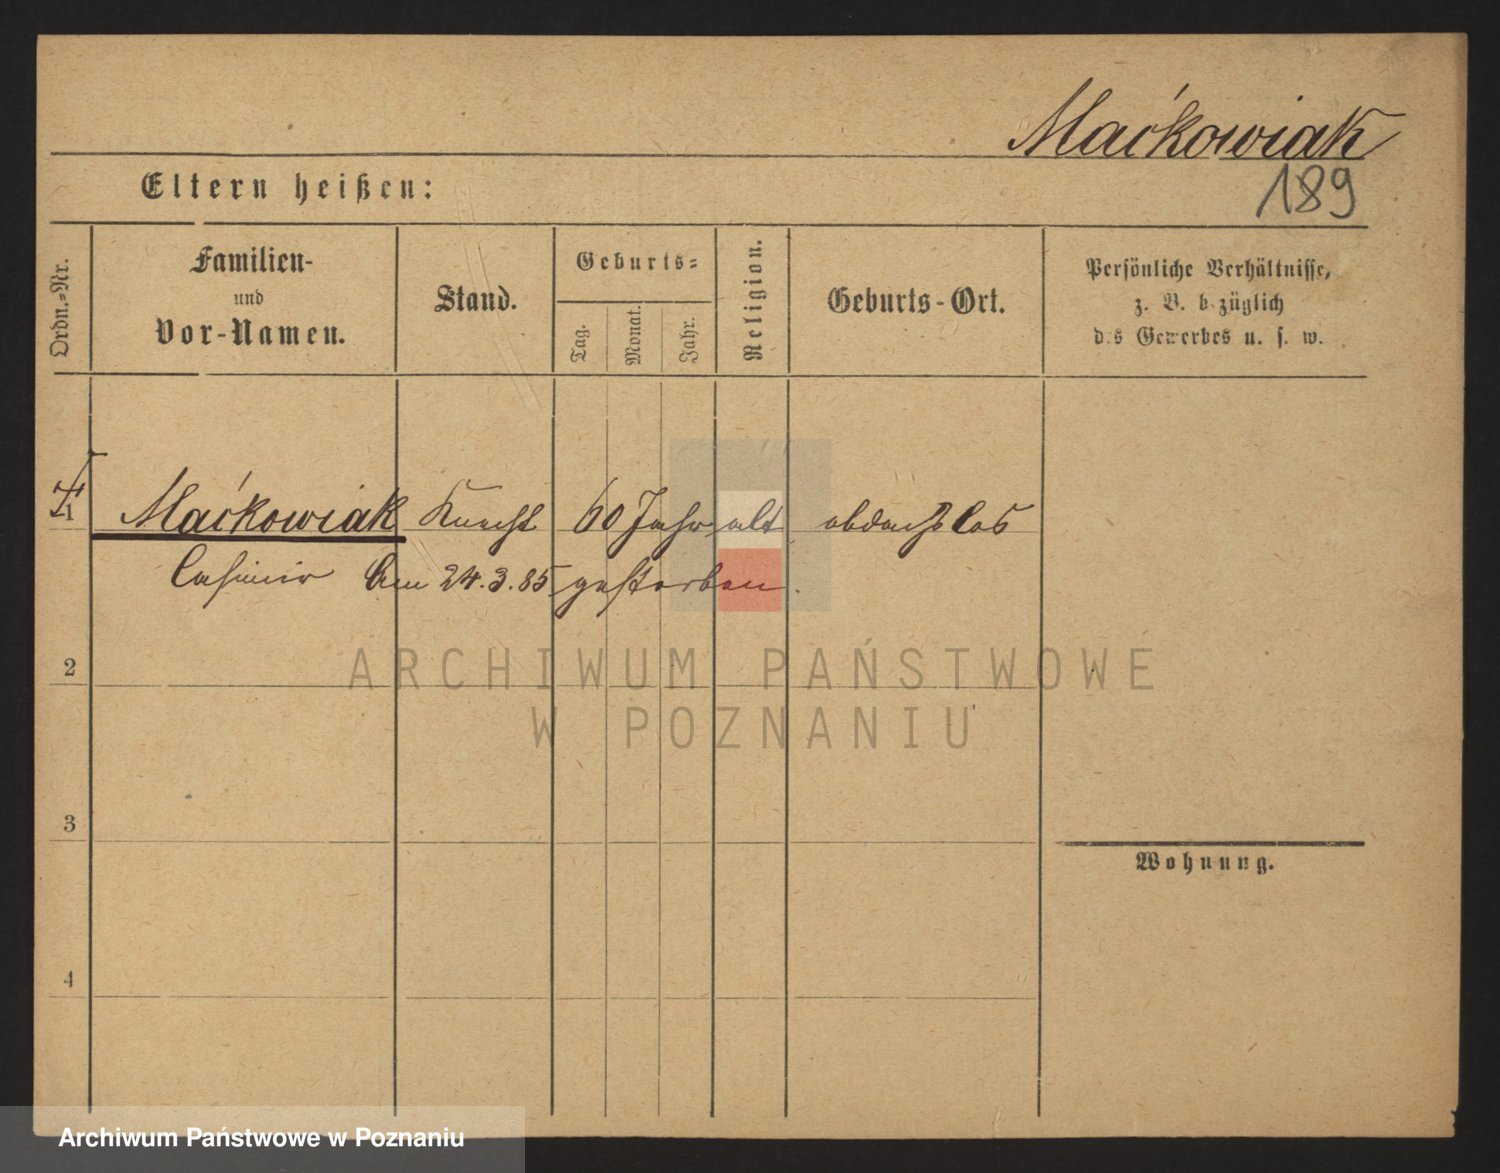 Maćkowiak
189
Eltern heißen:
Ordn.=Nr.
Familien-
und
Vor-Namen.
Stand.
Geburts=
Tag.
Monat.
Jahr.
Religion.
Geburts-Ort.
Persönliche Verhältnisse,
z. B. b züglich
d.s Gewerbes u. s. w.
1 Maćkowiak Knecht 60 Jahr alt obdachslos
Casimir Am 24.3.85 gestorben.
2
3
4
Wohnung.
ARCHIWUM PAŃSTWOWE
W POZNANIU
Archiwum Państwowe w Poznaniu